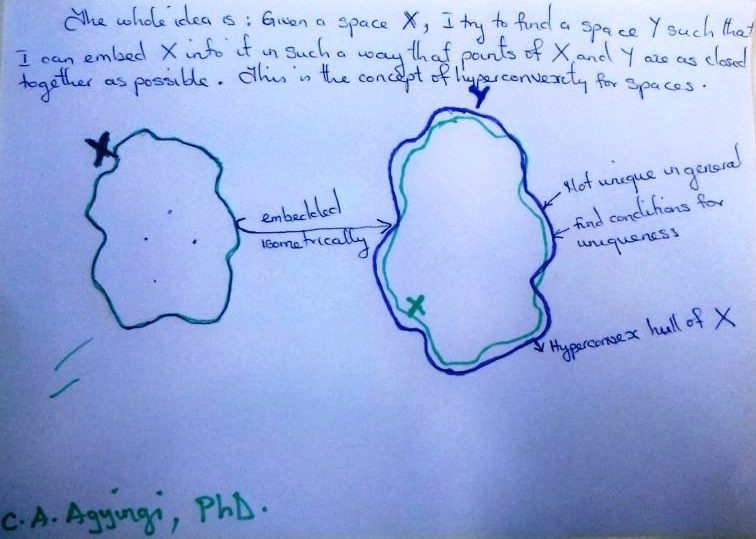 The whole idea is : Given a space X, I try to find a space Y such that
I can embed X into it in such a way that points of X and Y are as closed
together as possible. This is the concept of hyperconvexity for spaces.
X
Y
embedded
isometrically
Not unique in general
find conditions for
uniqueness
X
Hyperconvex hull of X
C.A. Agyingi, PhD.